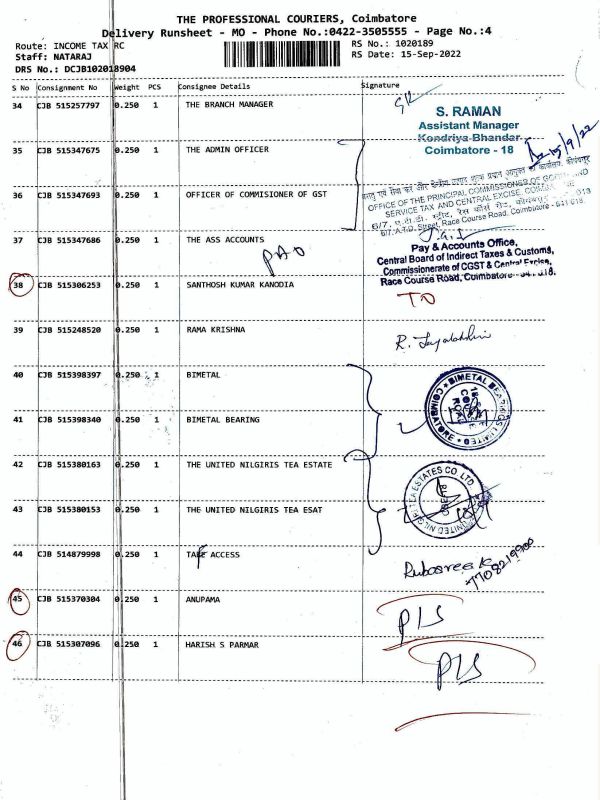 THE PROFESSIONAL COURIERS, Coimbatore
Delivery Runsheet - MO - Phone No.:0422-3505555 - Page No.:4
Route: INCOME TAX RC
RS No.: 1020189
Staff: NATARAJ
RS Date: 15-Sep-2022
DRS No.: DCJB102018904
S No Consignment No Weight PCS Consignee Details Signature
34 CJB 515257797 0.250 1 THE BRANCH MANAGER
S. RAMAN
Assistant Manager
Kendriya Bhandar
Coimbatore - 18
15/9/22
35 CJB 515347675 0.250 1 THE ADMIN OFFICER
36 CJB 515347693 0.250 1 OFFICER OF COMMISIONER OF GST
OFFICE OF THE PRINCIPAL COMMISSIONER OF
SERVICE TAX AND CENTRAL EXCISE,
6/7, A.T.D. Street, Race Course Road, Coimbatore - 641 018.
37 CJB 515347686 0.250 1 THE ASS ACCOUNTS
PAO
Pay & Accounts Office,
Central Board of Indirect Taxes & Customs,
Commissionerate of CGST & Central Excise,
Race Course Road, Coimbatore- 641 018.
38 CJB 515306253 0.250 1 SANTHOSH KUMAR KANODIA
TD
39 CJB 515248520 0.250 1 RAMA KRISHNA
40 CJB 515398397 0.250 1 BIMETAL
BIMETAL BEARINGS LIMITED
COIMBATORE
41 CJB 515398340 0.250 1 BIMETAL BEARING
42 CJB 515380163 0.250 1 THE UNITED NILGIRIS TEA ESTATE
UNITED NILGIRI TEA ESTATES CO. LTD
43 CJB 515380153 0.250 1 THE UNITED NILGIRIS TEA ESAT
44 CJB 514879998 0.250 1 TAKE ACCESS
7708219900
45 CJB 515370304 0.250 1 ANUPAMA
P/S
46 CJB 515307096 0.250 1 HARISH S PARMAR
P/S